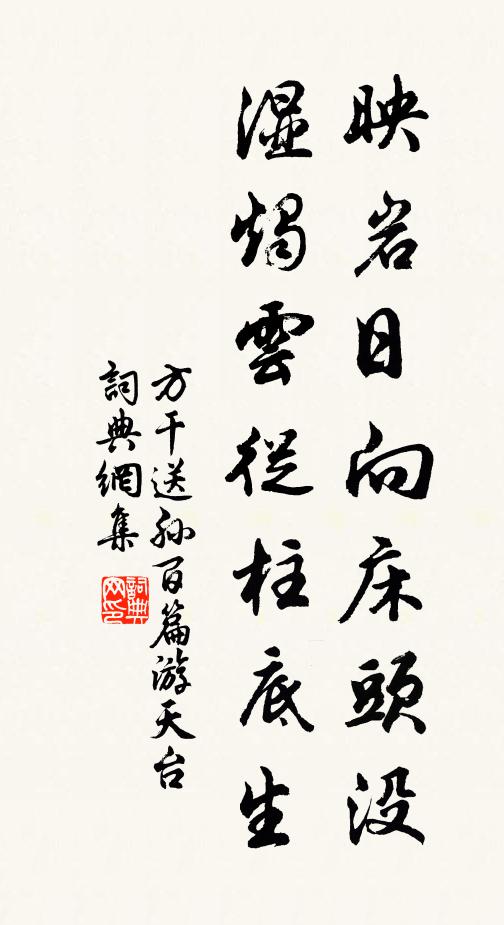 映岩日向床頭没
湿燭雲從柱底生
方干送孙百篇游天台
詞典網集
詞典網印